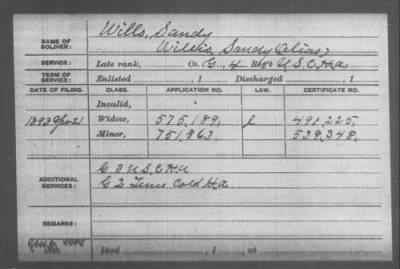 NAME OF SOLDIER: Wills, Sandy
Willis, Sandy (Alias)
SERVICE: Late rank, Co. G, 4 Reg't U.S.C.H.A
TERM OF SERVICE: Enlisted , 1 Discharged , 1
DATE OF FILING. CLASS. APPLICATION NO. LAW. CERTIFICATE NO.
Invalid,
1893 21 Widow, 575,189. 491,225.
Minor, 751,863. 538,348.
ADDITIONAL SERVICES: G 3 U S C H A
G 2 Tenn Cold H.A
REMARKS:
Died , 1 , at